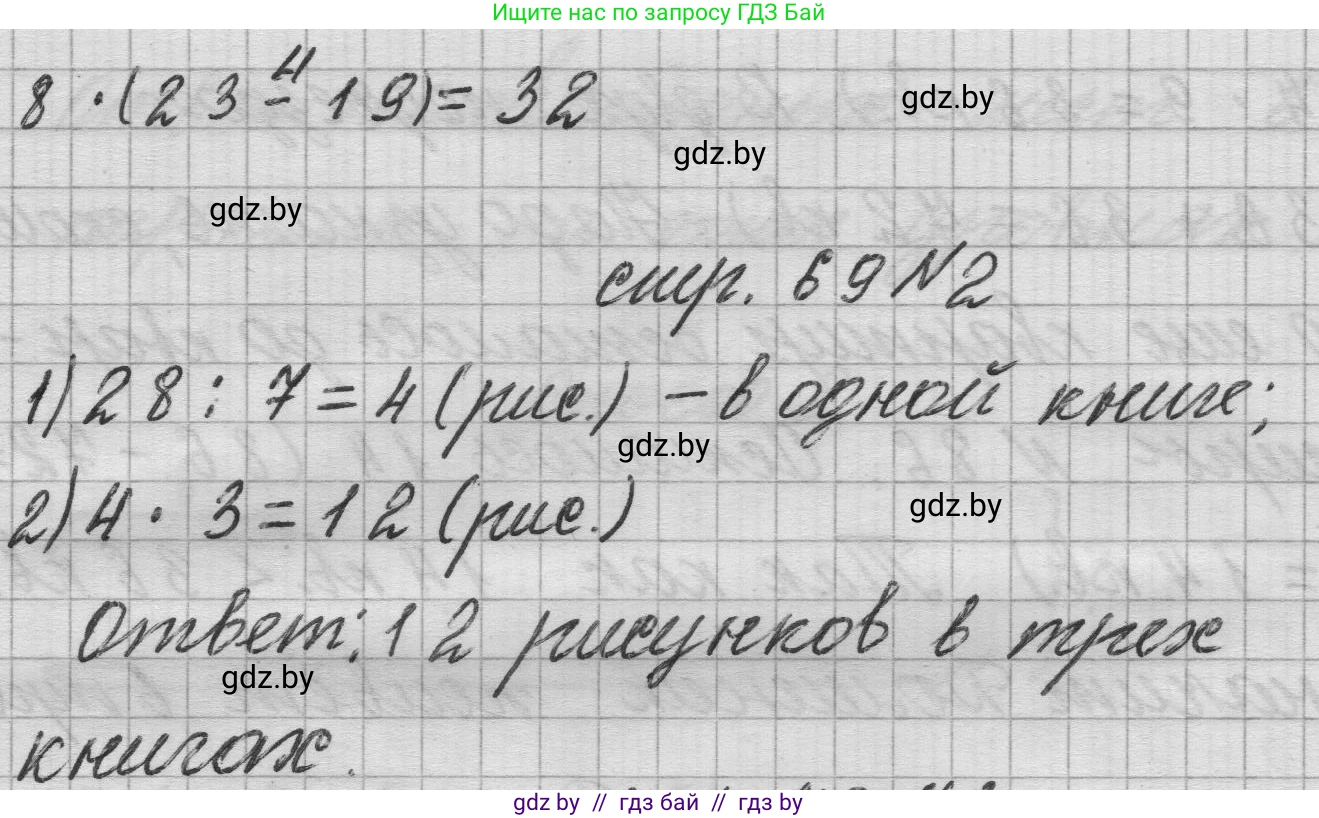 Ищите нас по запросу ГДЗ Бай
4
8 · (23 - 19) = 32
gdz.by
gdz.by
gdz.by
стр. 69 №2
1) 28 : 7 = 4 (рис.) – в одной книге;
gdz.by
2) 4 · 3 = 12 (рис.)
gdz.by
Ответ: 12 рисунков в трех
gdz.by
книгах.
gdz by // гдз бай // гдз by